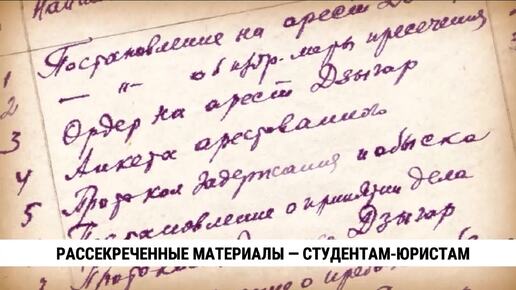 Наим
1 Постановление на арест Дз
2 — „ — об избр. меры пресечения
3 Ордер на арест Дзыгар
4 Анкета арестованного
5 Протокол задержания и обыска
Постановление о принятии дела
Дзыгар
РАССЕКРЕЧЕННЫЕ МАТЕРИАЛЫ – СТУДЕНТАМ-ЮРИСТАМ